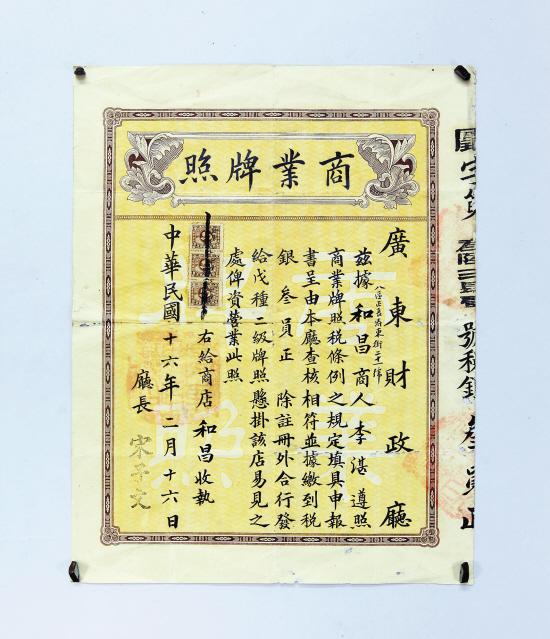 商業牌照
廣東財政廳
茲據和昌商人李湛遵照
商業牌照税條例之規定填具申報
書呈由本廳查核相符並據繳到税
銀叁員正除註冊外合行發
給戊種二級牌照懸掛該店易見之
處俾資營業此照
右給商店和昌收執
中華民國十六年二月十六日
廳長宋子文
商業
牌照